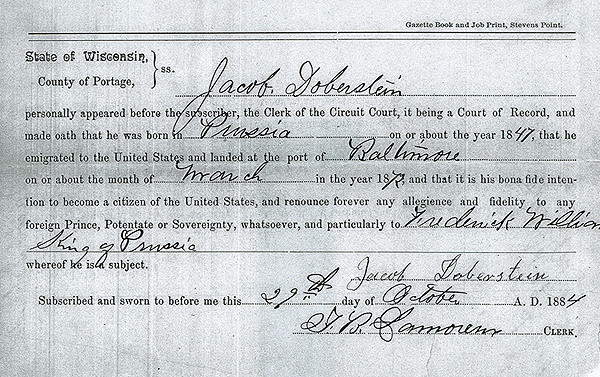 Gazette Book and Job Print, Stevens Point.
State of Wisconsin, } ss.
County of Portage,
Jacob Doberstein
personally appeared before the subscriber, the Clerk of the Circuit Court, it being a Court of Record, and
made oath that he was born in Prussia on or about the year 1847, that he
emigrated to the United States and landed at the port of Baltimore
on or about the month of March in the year 187, and that it is his bona fide inten-
tion to become a citizen of the United States, and renounce forever any allegience and fidelity to any
foreign Prince, Potentate or Sovereignty, whatsoever, and particularly to Frederick William
King of Prussia
whereof he is a subject.
Jacob Doberstein
Subscribed and sworn to before me this 29th day of October A. D. 1884
CLERK.